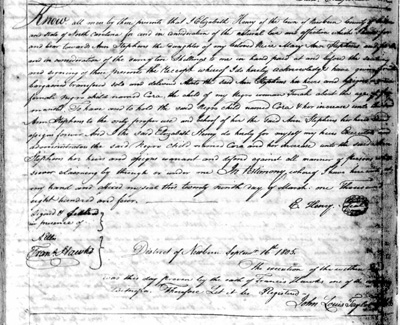 Know all men by these presents that I Elizabeth Henry of the town of Newbern County of
and State of North Carolina for and in consideration of the natural love and affection which I have for
and bear towards Ann Stephens the daughter of my beloved Niece Mary Ann Stephens and for
and in consideration of the sum of ten Shillings to me in hand paid at and before the
and of these presents the Receipt whereof I do hereby acknowledge have
bargained transferred sold and delivered unto the said Ann Stephens her heirs and assigns a
female Negro child named Cora, the child of my Negro woman the age of
months To have and to hold the said Negro child named Cora & her increase unto the said
Ann Stephens to the only proper use and behoof of her the said Ann Stephens her heirs and
assigns forever And I the said Elizabeth Henry do hereby for myself my heirs Executors
administrators the said Negro Child named Cora and her increase unto the said Ann
Stephens her heirs and assigns warrant and defend against all manner of Persons
claiming by through or under me In Testimony whereof I have hereunto set
my hand and affixed my seal this twenty fourth day of March one Thousand
eight hundred and four
E. Henry
Signed & sealed
in presence of
Fran. Hawks
District of Newbern Septem. 16th 1805.
The execution of the within
was this day proven by the oath of Francis Hawks one of the
witnesses. Therefore Let it be Registered
John Louis Taylor